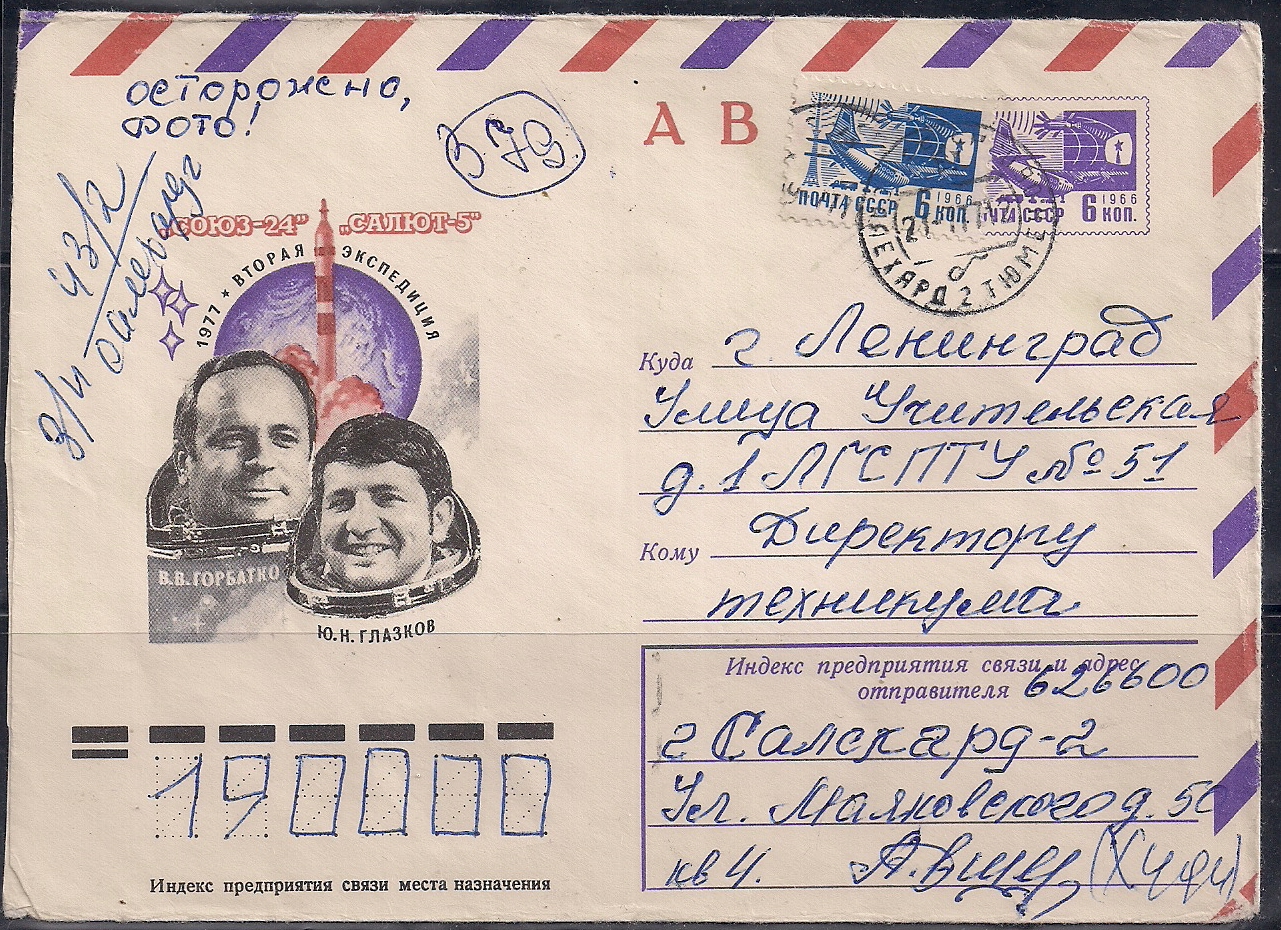 осторожено,
фото!
З.79.
43/2
А В
ПОЧТА СССР 6 КОП. 1966
ЧТА СССР 6 КОП. 1966
ЛЕХАРД 2 ТЮМЕ
"СОЮЗ-24" „САЛЮТ-5"
1977 ★ ВТОРАЯ ЭКСПЕДИЦИЯ
В.В.ГОРБАТКО
Ю.Н.ГЛАЗКОВ
Куда г. Ленинград
Улица Учительская
д.1 ЛГСПТУ № 51
Кому Директору
техникума
Индекс предприятия связи и адрес
отправителя 626600
г. Салехард-2
Ул. Маяковского д. 50
кв 4.
190000
Индекс предприятия связи места назначения